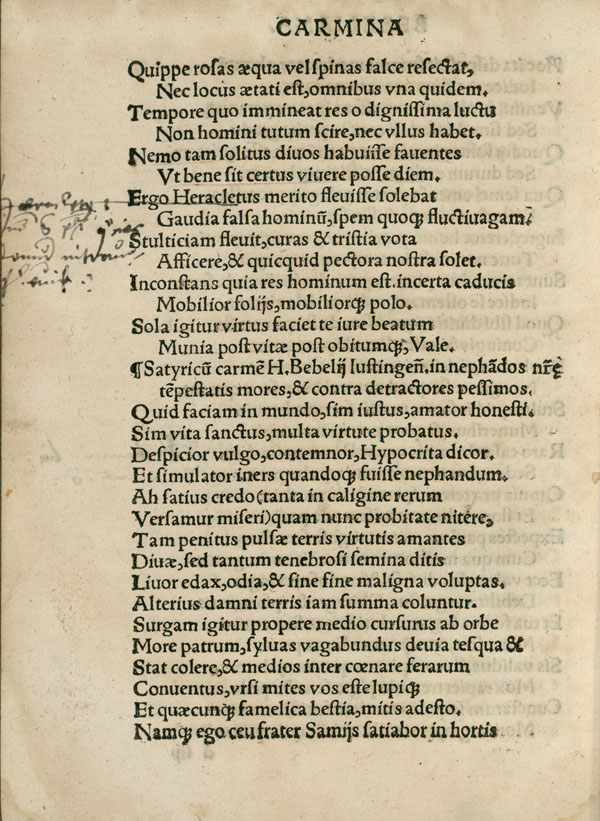 CARMINA
Quippe rosas æqua vel spinas falce resectat,
Nec locus ætati est, omnibus vna quidem.
Tempore quo immineat res o dignissima luctu
Non homini tutum scire, nec vllus habet.
Nemo tam solitus diuos habuisse fauentes
Vt bene sit certus viuere posse diem.
Ergo Heracletus merito fleuisse solebat
Gaudia falsa hominū, spem quoqꝫ fluctiuagam:
Stulticiam fleuit, curas & tristia vota
Afficere, & quicquid pectora nostra solet.
Inconstans quia res hominum est. incerta caducis
Mobilior folijs, mobiliorqꝫ polo.
Sola igitur virtus faciet te iure beatum
Munia post vitæ post obitumqꝫ, Vale.
¶Satyricū carmē H. Bebelij Iustingeñ. in nephādos nr̄ę
tēpestatis mores, & contra detractores pessimos.
Quid faciam in mundo, sim iustus, amator honesti.
Sim vita sanctus, multa virtute probatus.
Despicior vulgo, contemnor, Hypocrita dicor.
Et simulator iners quandoqꝫ fuisse nephandum.
Ah satius credo (tanta in caligine rerum
Versamur miseri) quam nunc probitate nitere,
Tam penitus pulsæ terris virtutis amantes
Diuæ, sed tantum tenebrosi semina ditis
Liuor edax, odia, & sine fine maligna voluptas.
Alterius damni terris iam summa coluntur.
Surgam igitur propere medio cursurus ab orbe
More patrum, syluas vagabundus deuia tesqua &
Stat colere, & medios inter cœnare ferarum
Conuentus, vrsi mites vos este lupiqꝫ
Et quæcunqꝫ famelica bestia, mitis adesto.
Namqꝫ ego ceu frater Samijs satiabor in hortis